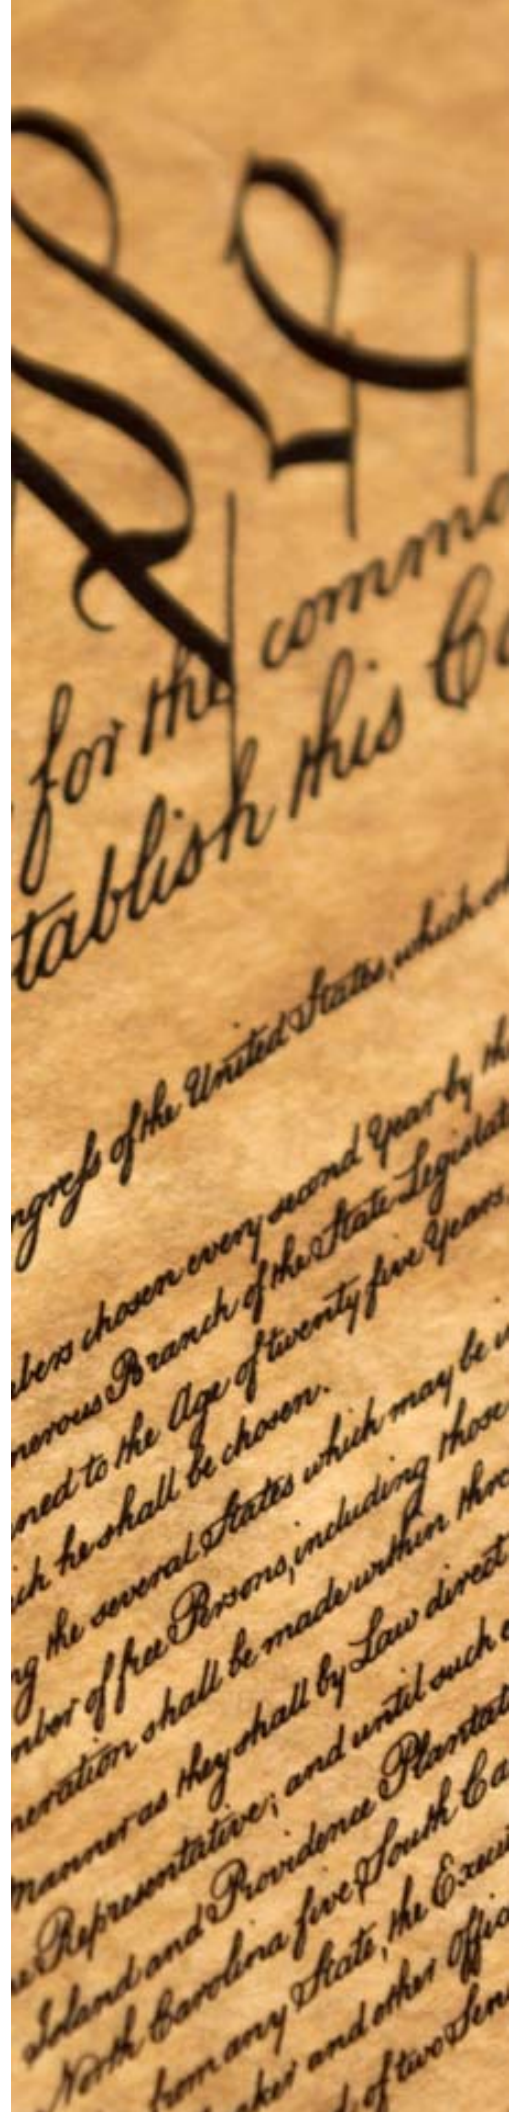 We
for the commo
tablish this Co
ngress of the United States, which sh
bers chosen every second Year by th
nerous Branch of the State Legislat
ned to the Age of twenty five Years,
ich he shall be chosen.
ng the several States which may be i
mber of free Persons, including those
meration shall be made within thre
Manner as they shall by Law direct
e Representative; and until such e
Island and Providence Plantat
North Carolina five, South Ca
from any State, the Execu
aker and other Offic
d of two Sen